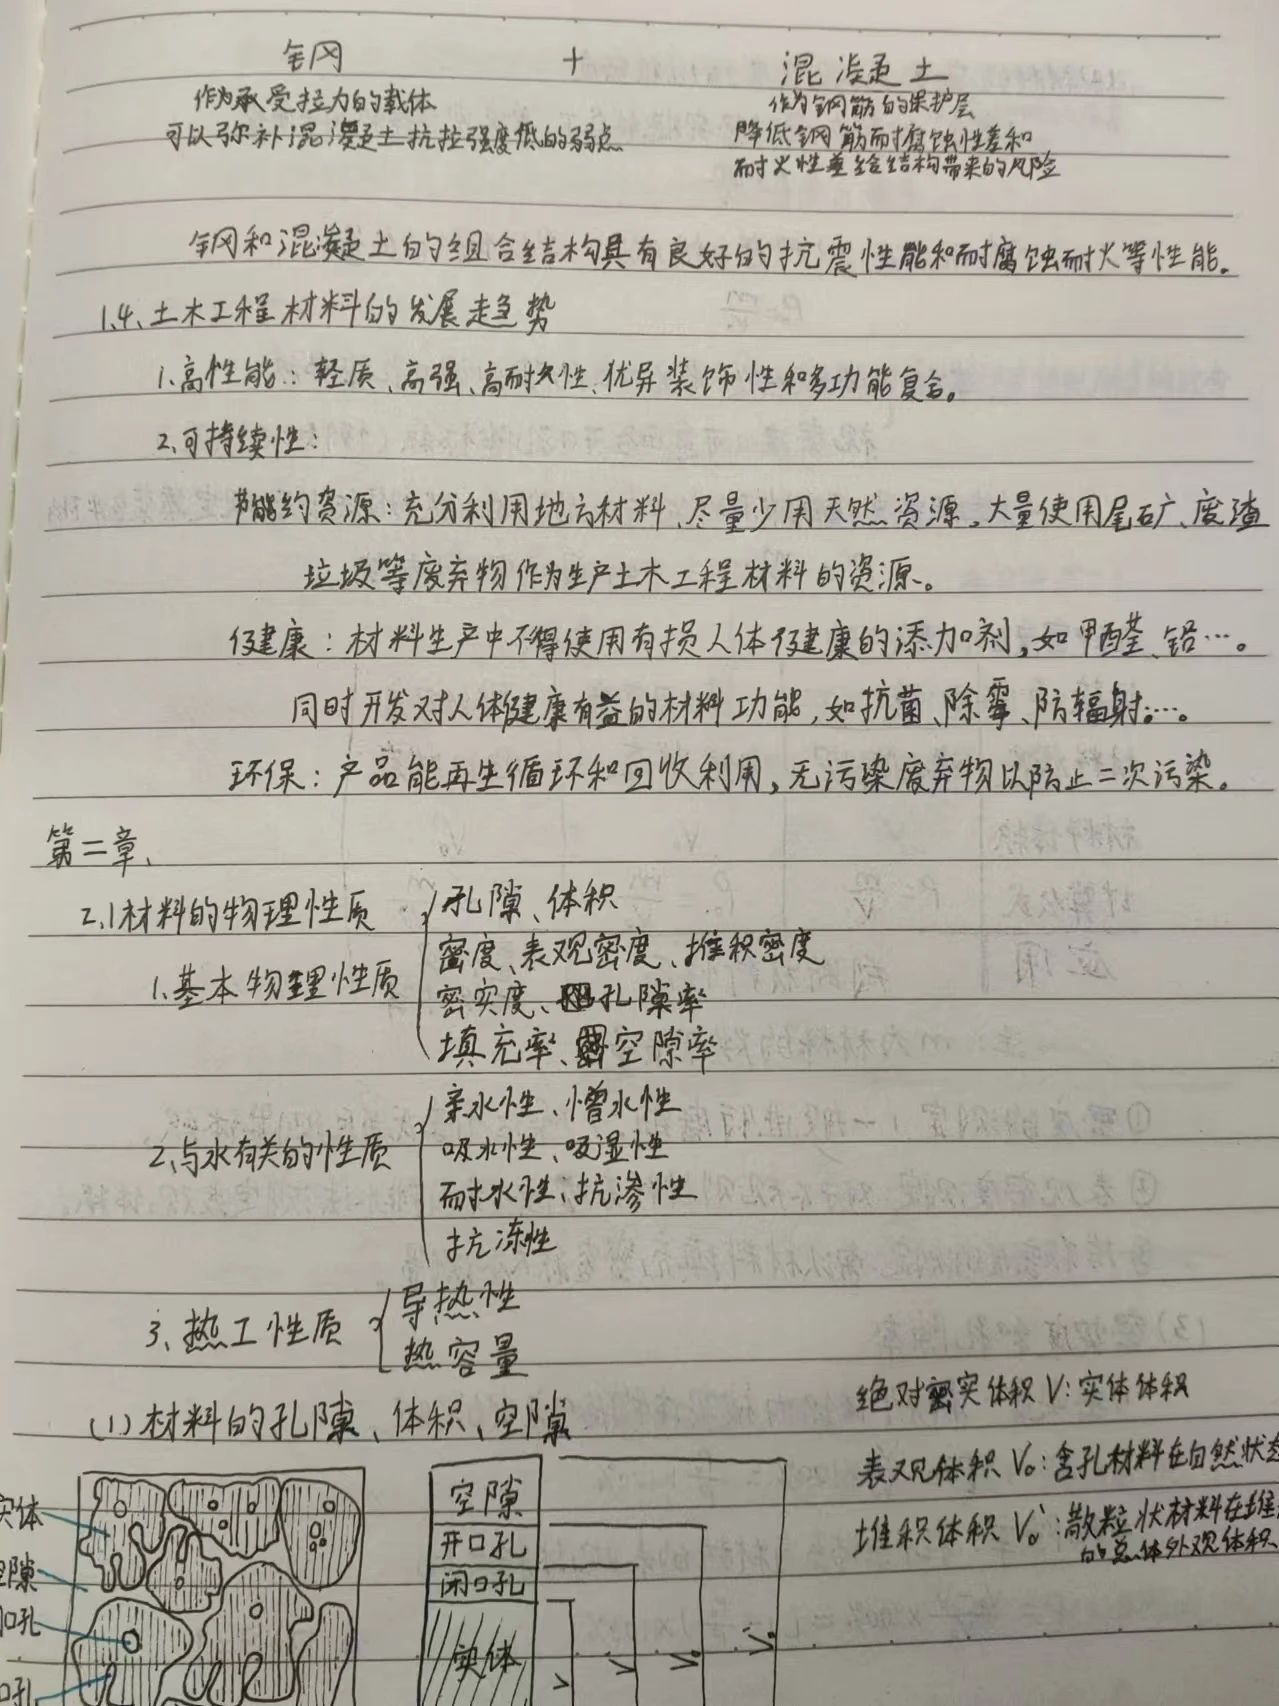 钢 + 混凝土
作为承受拉力的载体
可以弥补混凝土抗拉强度低的弱点
作为钢筋的保护层
降低钢筋耐腐蚀性差和
耐火性差给结构带来的风险
钢和混凝土的组合结构具有良好的抗震性能和耐腐蚀耐火等性能。
1.4、土木工程材料的发展趋势
1.高性能：轻质、高强、高耐久性、优异装饰性和多功能复合。
2.可持续性：
节能约资源：充分利用地方材料、尽量少用天然资源，大量使用尾矿、废渣
垃圾等废弃物作为生产土木工程材料的资源。
健康：材料生产中不得使用有损人体健康的添加剂，如甲醛、铅…。
同时开发对人体健康有益的材料功能，如抗菌、除霉、防辐射…。
环保：产品能再生循环和回收利用，无污染废弃物以防止二次污染。
第二章、
2.1材料的物理性质
1.基本物理性质
孔隙、体积
密度、表观密度、堆积密度
密实度、孔隙率
填充率、空隙率
2、与水有关的性质
亲水性、憎水性
吸水性、吸湿性
耐水性、抗渗性
抗冻性
3、热工性质
导热性
热容量
(1)材料的孔隙、体积、空隙
绝对密实体积 V：实体体积
表观体积 V₀：含孔材料在自然状态
堆积体积 V₀′：散粒状材料在堆
的总体外观体积
实体
隙
口孔
口孔
空隙
开口孔
闭口孔
实体
V
V
V₀
V₀′